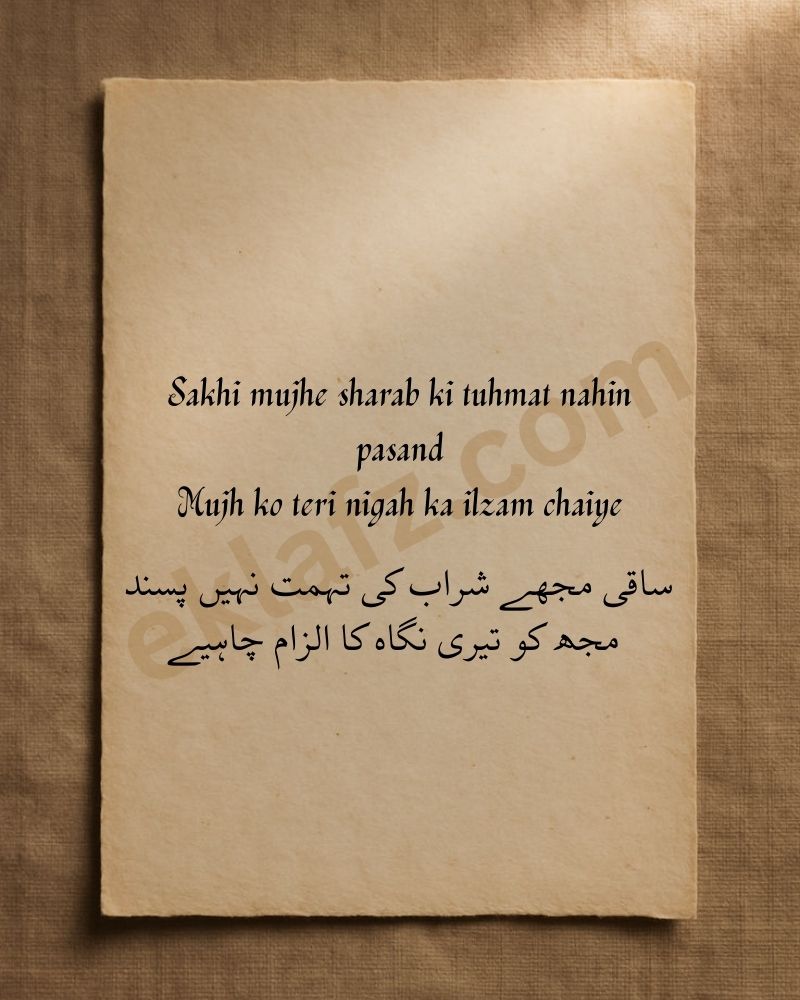 Sakhi mujhe sharab ki tuhmat nahin
pasand
Mujh ko teri nigah ka ilzam chaiye
ساقی مجھے شراب کی تہمت نہیں پسند
مجھ کو تیری نگاہ کا الزام چاہیے
eklafz.com